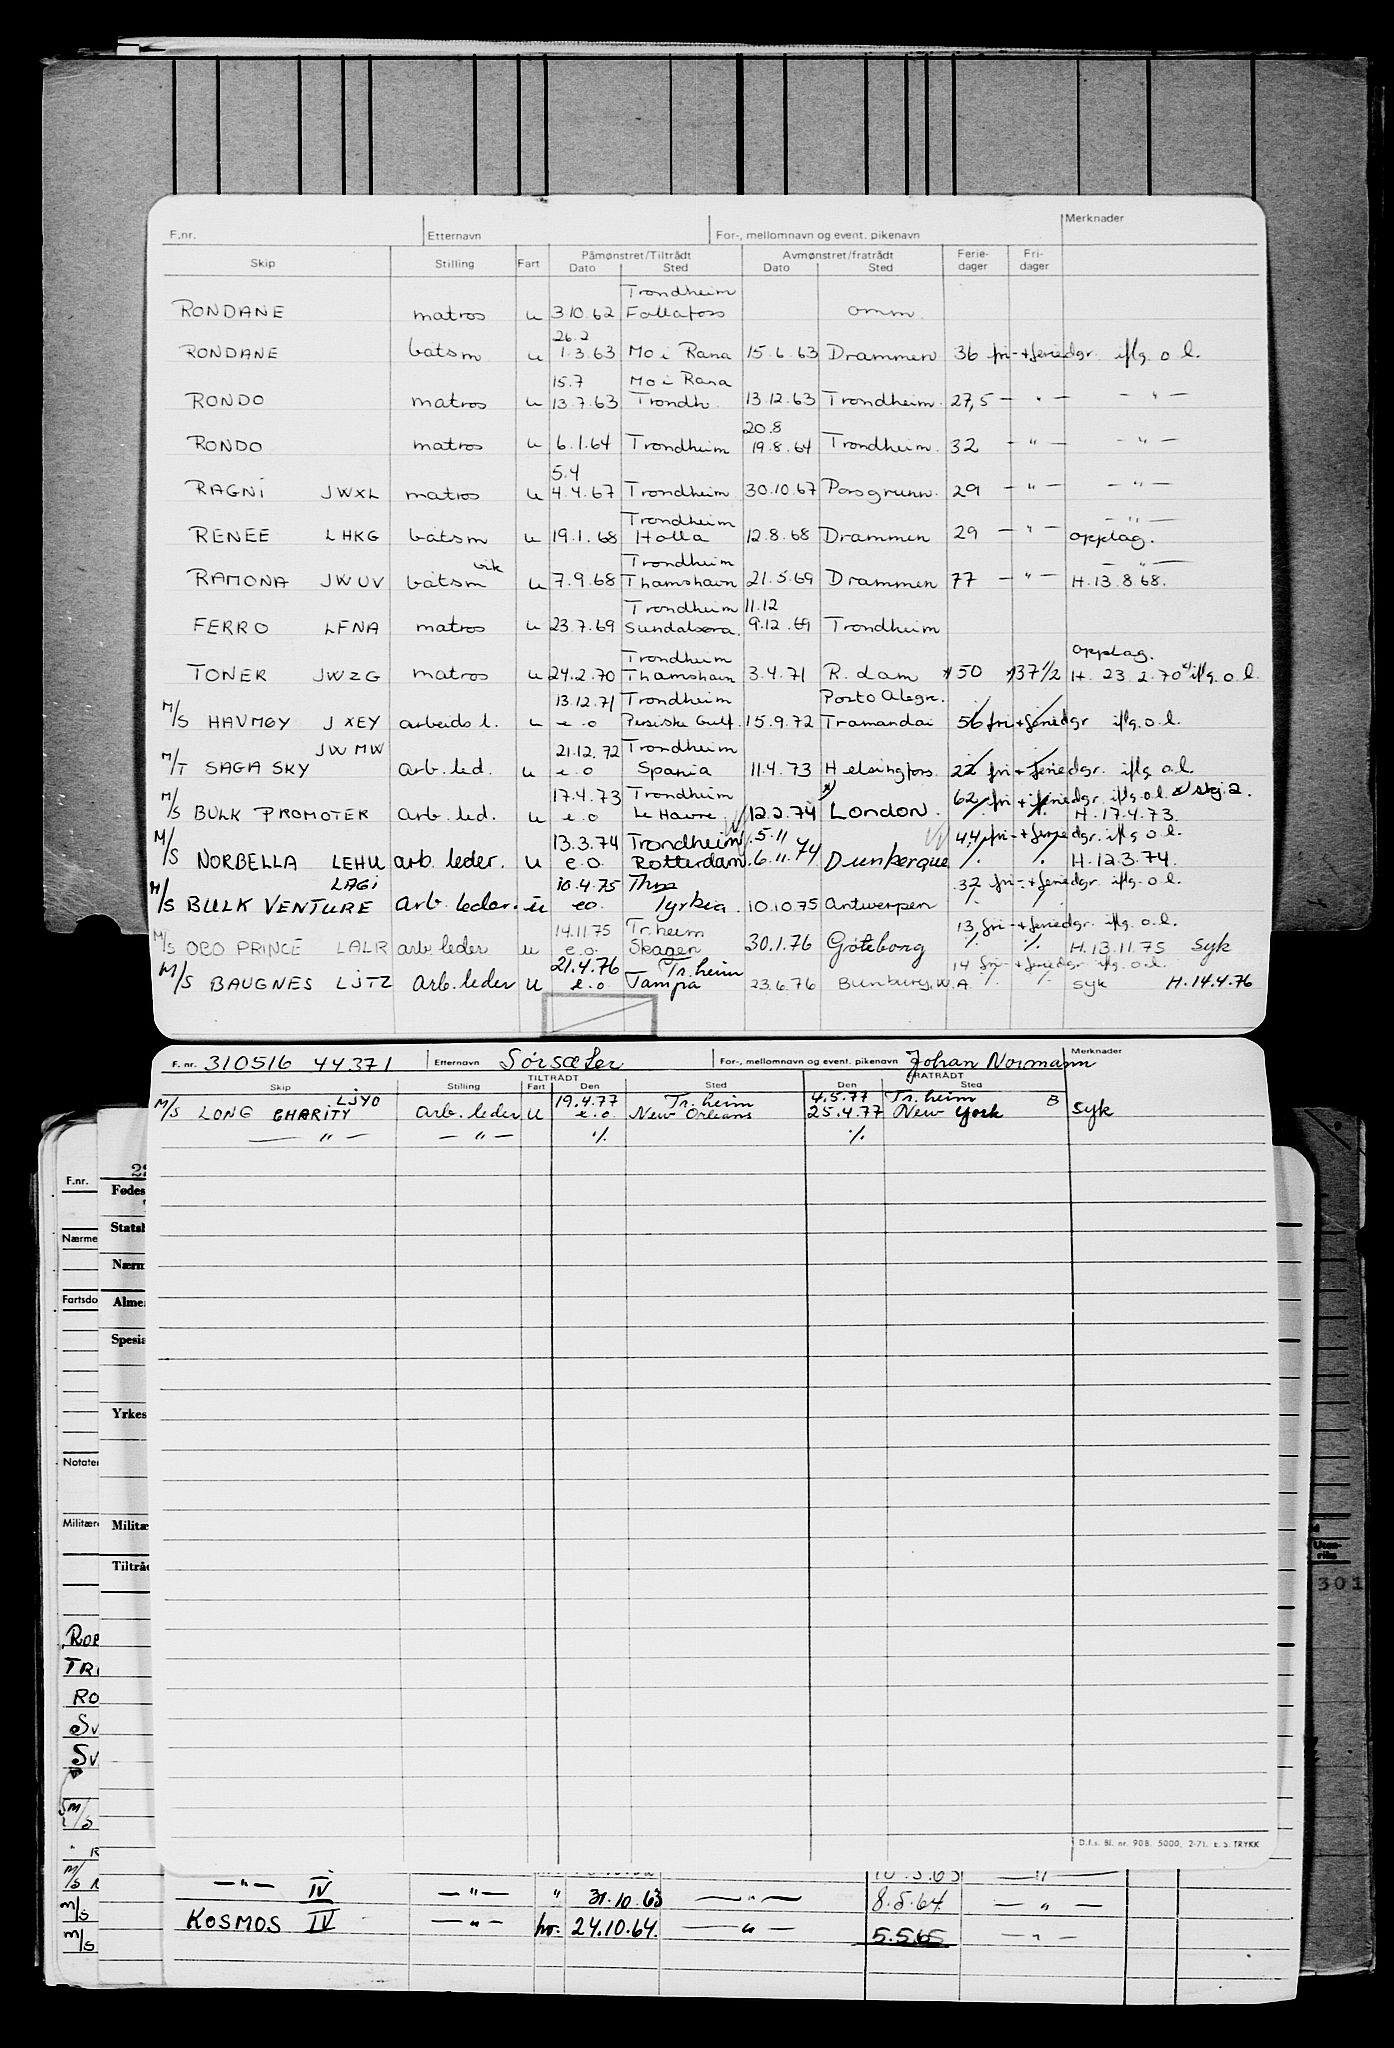 F.nr. Etternavn For-, mellomnavn og event. pikenavn Merknader
Skip Stilling Fart Påmønstret/Tiltrådt Dato Sted Avmønstret/fratrådt Dato Sted Ferie-dager Fri-dager
Trondheim
RONDANE matros u 3.10.62 Follafoss omm.
26.2
RONDANE båtsm u 1.3.63 Mo i Rana 15.6.63 Drammen 36 fri-+feriedgr. iflg. o.l.
15.7 Mo i Rana
RONDO matros u 13.7.63 Trondh. 13.12.63 Trondheim. 27,5 — " — — " —
20.8
RONDO matros u 6.1.64 Trondheim 19.8.64 Trondheim. 32 — " — — " —
5.4
RAGNI JWXL matros u 4.4.67 Trondheim 30.10.67 Porsgrunn. 29 — " — — " —
Trondheim — " —
RENEE LHKG båtsm u 19.1.68 Holla 12.8.68 Drammen 29 — " — opplag.
vik Trondheim — " —
RAMONA JWUV båtsm u 7.9.68 Thamshavn 21.5.69 Drammen 77 — " — H. 13.8.68.
Trondheim 11.12
FERRO LFNA matros u 23.7.69 Sundalsøra. 9.12.69 Trondheim
Trondheim opplag.
TONER JWZG matros u 24.2.70 Thamshavn 3.4.71 R.dam 50 37 1/2 H. 23.2.70 iflg. o.l.
13.12.71 Trondheim Porto Alegre.
M/S HAVMØY JXEY arbeids l. u e.o Persiske Gulf. 15.9.72 Tramandai 56 fri-+feriedgr iflg. o.l.
JWMW 21.12.72 Trondheim
M/T SAGA SKY arb. led. u e.o Spania 11.4.73 Helsingfors. 22 fri-+feriedgr. iflg o.l.
17.4.73 Trondheim 62 fri-+feriedgr. iflg. o.l. skj. 2.
M/S BULK PROMOTER arb. led. u e.o Le Havre. 12.2.74 London. % % H. 17.4.73.
13.3.74 Trondheim 5.11 44 fri-+feriedgr. iflg o.l.
M/S NORBELLA LEHU arb. leder. u e.o. Rotterdam 6.11.74 Dunkerque % % H. 12.3.74.
LAGI 10.4.75 32 fri-+feriedgr. iflg. o.l.
M/S BULK VENTURE arb. leder. u eo. Tyrkia. 10.10.75 Antwerpen % %
14.11.75 Tr.heim 13 fri-+feriedgr. iflg. o.l.
M/S OBO PRINCE LALR arb. leder u e.o. Skagen 30.1.76 Göteborg % % H. 13.11.75 syk
21.4.76 Tr.heim 14 fri-+feriedgr iflg. o.l.
M/S BAUGNES LJTZ arb. leder u e.o Tampa 23.6.76 Bunbury, W.A. % % syk H. 14.4.76
F. nr. 310516 44371 Etternavn Sörsæter For-, mellomnavn og event. pikenavn Johan Normann Merknader
TILTRÅDT FRATRÅDT
Skip Stilling Fart Den Sted Den Sted
LJYO 19.4.77 Tr.heim 4.5.77 Tr.heim
M/S LONG CHARITY arb. leder u e.o. New Orleans 25.4.77 New York B syk
— " — — " — % %
D.f.s. Bl. nr. 90B. 5000, 2-71. E.S. TRYKK
F.nr.
Fødes
Statsb
Nærme
Nærm
Fartsdo
Almen
Spesia
Yrkes
Notater
Militære
Militæ
Tiltråd
301
ROP
TRI
RO
SV
SV
M/S
M/S R
M/S
M/S
10.5.63 — " —
— " — IV — " — " 31.10.63 — " — 8.5.64 — " —
KOSMOS IV — " — hv. 24.10.64. — " — 5.5.65 — " —